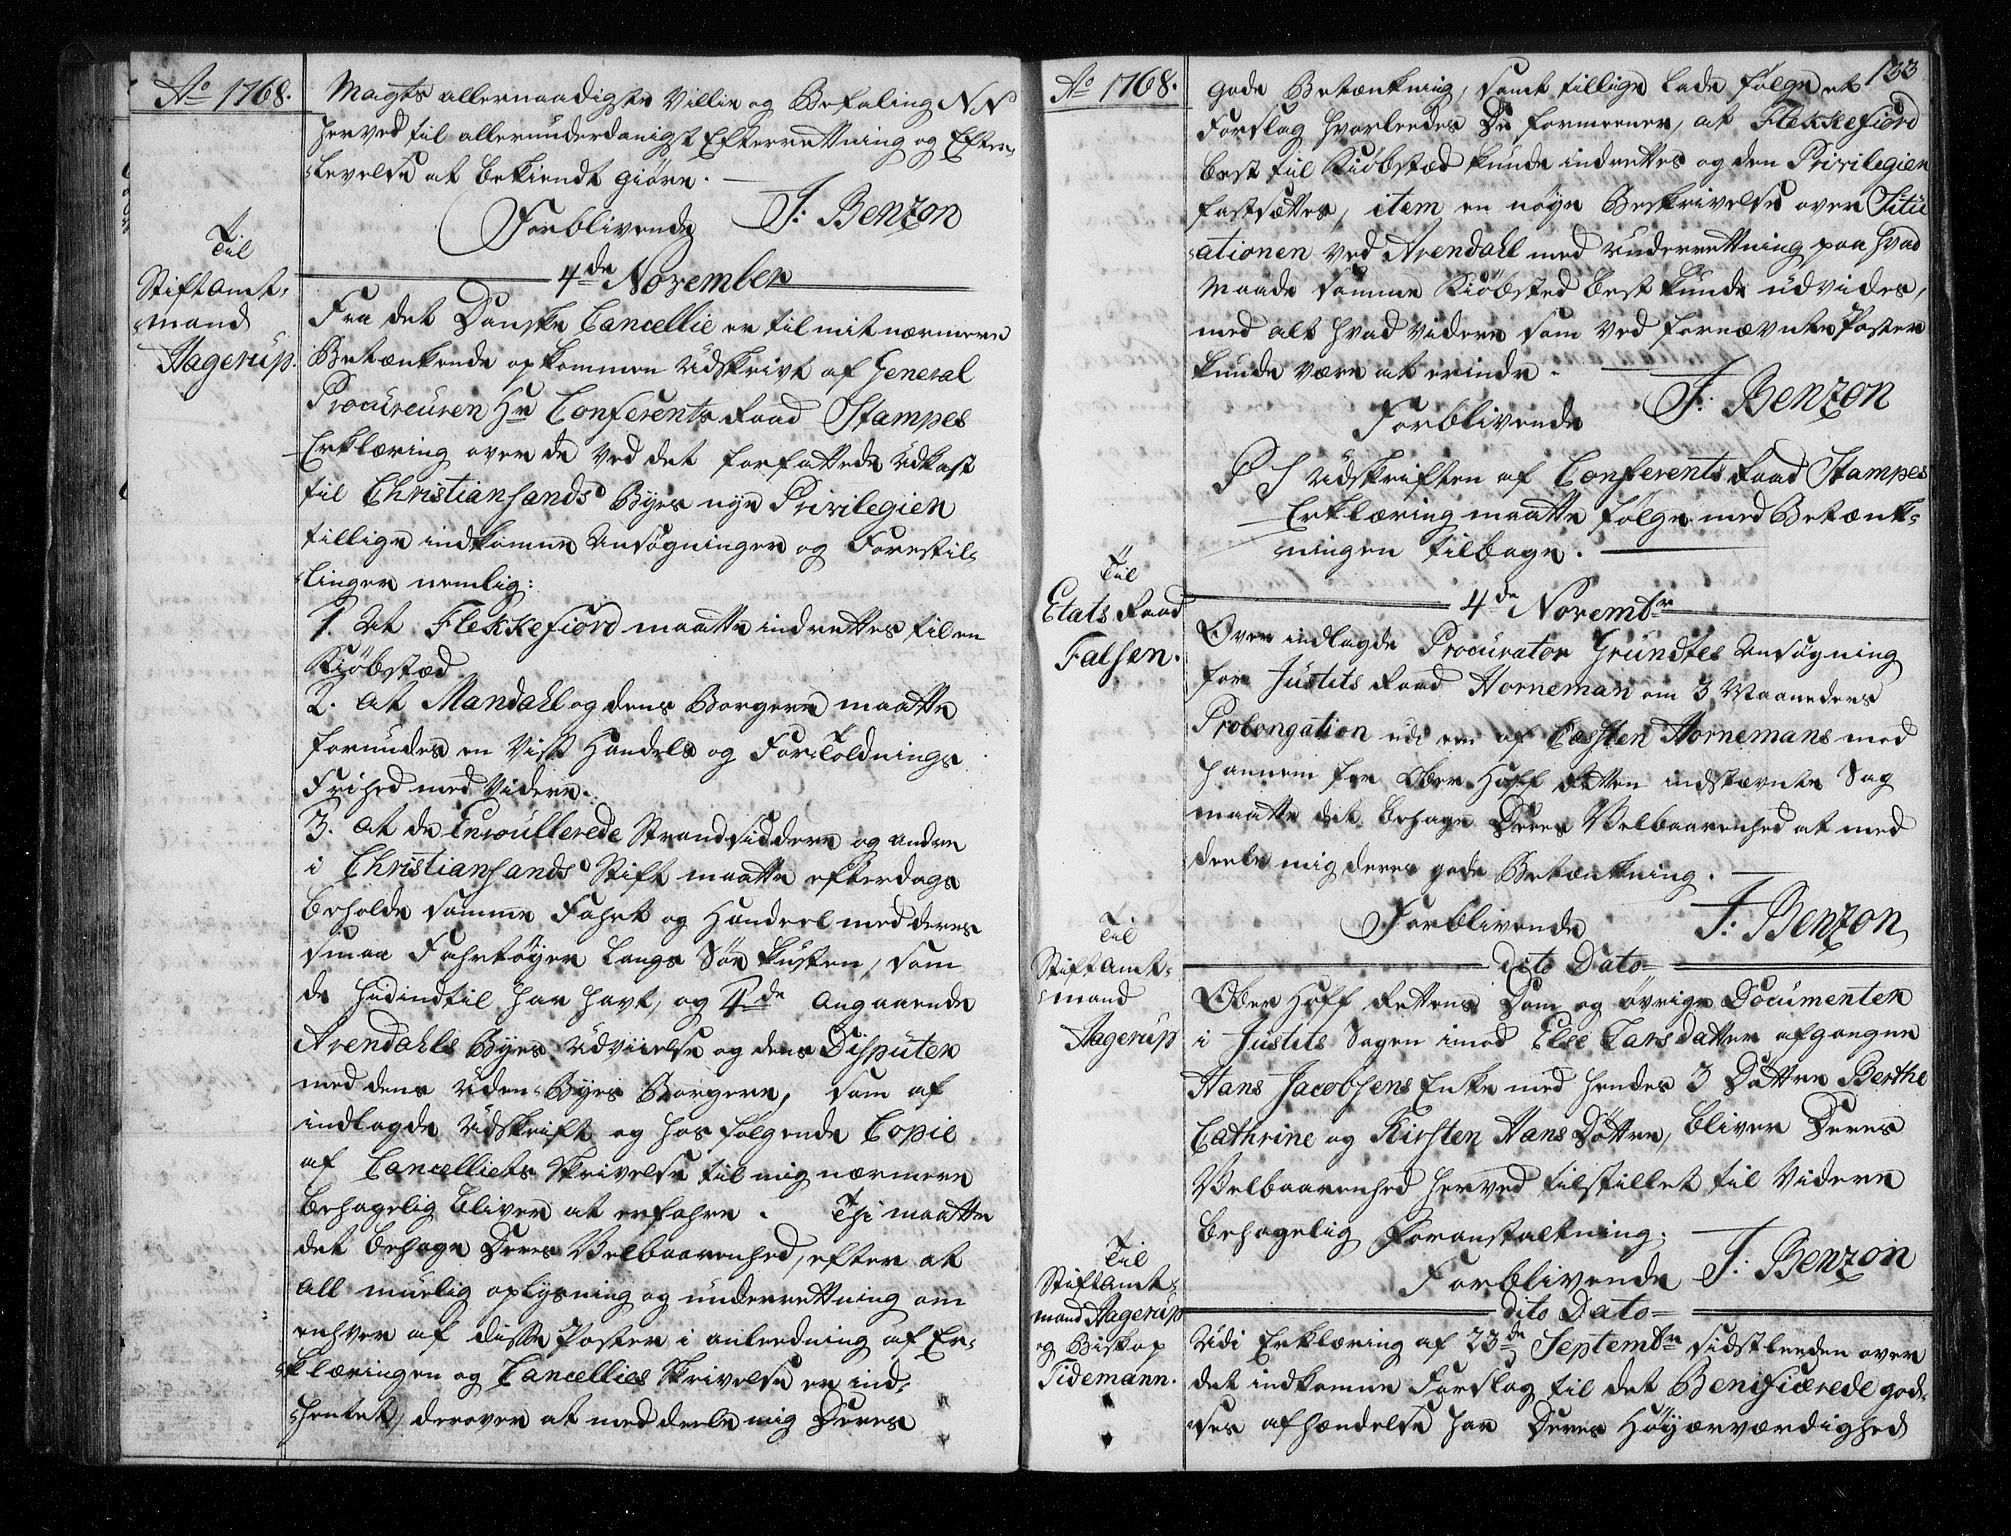 Ao 1768.
Magts allernaadigste Villie og Befaling NN
herved til allerunderdanigst Efterrettning og Efter-
levelse at bekiendt giøre.
Forblivende J: Benzon
4de November
Til
Stiftamt-
mand
Hagerup.
Fra det Danske Cancellie er til mit nærmere
Betænkende opkommen Udskrivt af General
Procureuren Hr Conferents Raad Stampes
Erklæring over de ved det forfattede Udkast
til Christiansands Byes nye Privilegien
tillige indkomne Ansøgninger og Forestil-
linger nemlig:
1. At Flekkefiord maatte indrettes til en
Kiøbstæd
2. at Mandahl og dens Borgere maatte
forundes en vist Handels og Fortoldnings
Frihed med videre.
3. at de Enroullerede Strandsiddere og andre
i Christiansands Stift maatte efterdags
beholde samme Fahrt og Handel med deres
smaa Fahrtøyer langs Søe kusten, som
de hidindtil har havt, og 4de angaaende
Arendahls Byes Udviielse og dens Disputer
med dens uden Byes Borgere, som af
indlagde Udskrift og hosfølgende Copie
af Cancelliets Skrivelse til mig nærmere
behagelig bliver at erfahre. Thi maatte
det behage Deres Velbaarenhed, efter at
all muelig oplysning og underrettning om
enhver af disse Poster i anledning af Er-
klæringen og Cancellies Skrivelse er ind-
hentet, derover at meddeele mig Deres
Ao 1768.
133
gode Betænkning, samt tillige lade følge et
Forslag hvorleedes De formeener, at Flekkefiord
best til Kiøbstæd kunde indrettes og den Privilegien
fastsættes, item en nøye Beskrivelse over Situ
ationen ved Arendahl med Underrettning paa hvad
Maade samme Kiøbsted best kunde udvides,
med alt hvad videre som ved fornævnte Poster
kunde være at erindre.
Forblivende J: Benzon
P S Udskriften af Conferents Raad Stampes
Erklæring maatte følge med Betænk-
ningen tilbage.
4de Novembr
Til
Etats Raad
Falsen.
Over indlagde Procurator Gründtes Ansøgning
for Justits Raad Horneman om 3 Maaneders
Prolongation udi en af Carsten Hornemans med
hannem for Ober Hoff Retten indstævnte Sag
maatte det behage Deres Velbaarenhed at med
deele mig deres gode Betænkning.
Forblivende J: Benzon
dito Dato
Til
Stiftamt-
mand
Hagerup
Ober Hoff Rettens Dom og øvrige Documenter
i Justits Sagen imod Else Larsdatter afgangne
Hans Jacobsens Enke med hendes 3 Døttre Berthe
Cathrine og Kirsten Hans Døttre, bliver Deres
Velbaarenhed herved tilstillet til videre
behagelig Foranstaltning.
Forblivende J: Benzon
dito Dato
Til
Stiftamt-
mand Hagerup
og Biskop
Tidemann.
Udi Erklæring af 23de Septembr sidstleeden over
det indkomne Forslag til det Benificerede god-
ses afhændelse har Deres Høyærværdighed